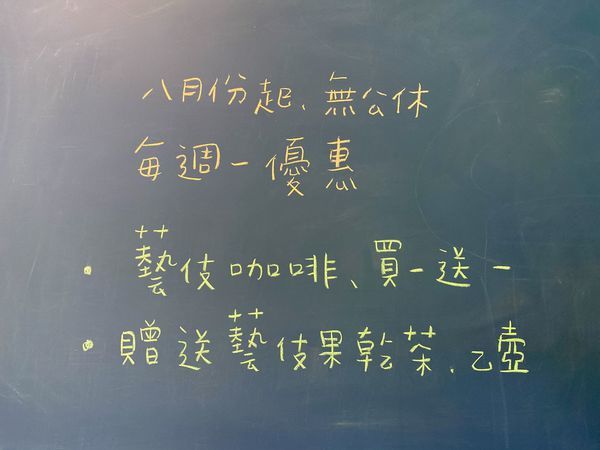 八月份起、無公休
每週一優惠
• 藝伎咖啡、買一送一
• 贈送藝伎果乾茶、乙壺